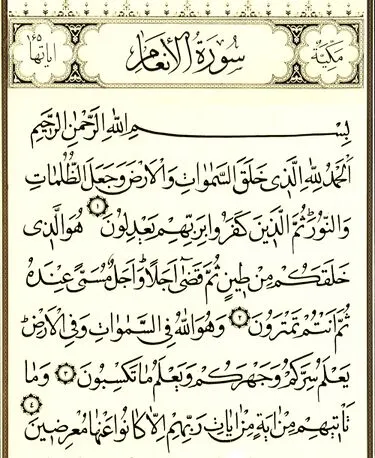 مكية سورة الأنعام اياتها ١٦٥
بِسْمِ اللهِ الرَّحْمٰنِ الرَّحِيمِ
اَلْحَمْدُ لِلّٰهِ الَّذِي خَلَقَ السَّمٰوَاتِ وَالْاَرْضَ وَجَعَلَ الظُّلُمَاتِ
وَالنُّورَ ثُمَّ الَّذِينَ كَفَرُوا بِرَبِّهِمْ يَعْدِلُونَ ١ هُوَ الَّذِي
خَلَقَكُمْ مِنْ طِينٍ ثُمَّ قَضٰى اَجَلًا وَاَجَلٌ مُسَمًّى عِنْدَهُ
ثُمَّ اَنْتُمْ تَمْتَرُونَ ٢ وَهُوَ اللهُ فِي السَّمٰوَاتِ وَفِي الْاَرْضِ
يَعْلَمُ سِرَّكُمْ وَجَهْرَكُمْ وَيَعْلَمُ مَا تَكْسِبُونَ ٣ وَمَا
تَأْتِيهِمْ مِنْ اٰيَةٍ مِنْ اٰيَاتِ رَبِّهِمْ اِلَّا كَانُوا عَنْهَا مُعْرِضِينَ ٤